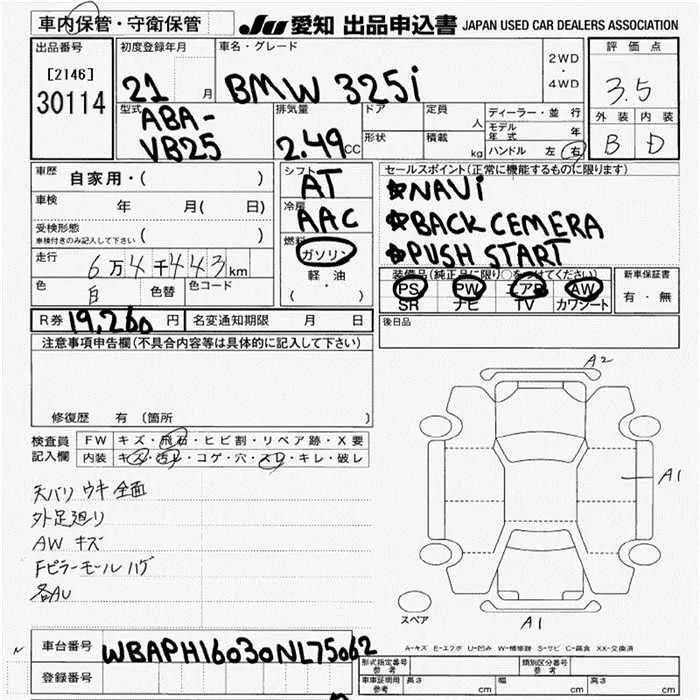 車内保管・守衛保管 JU 愛知 出品申込書 JAPAN USED CAR DEALERS ASSOCIATION
出品番号 初度登録年月 車名・グレード 2WD・4WD 評価点
[2146]
30114 21 月 BMW 325i 3.5
型式 排気量 ドア 定員 人 ディーラー・並行
モデル年式 年
外装 内装
ABA-VB25 2.49CC 形状 積載 kg ハンドル 左 右 B D
車歴 自家用・( ) シフト AT セールスポイント(正常に機能するものに限ります)
☆NAVi
車検 年 月( 日) 冷房 AAC ☆BACK CEMERA
受検形態 ( )
車検付きのみ記入して下さい
燃料 ガソリン ☆PUSH START
走行 6万4千443km 軽油 装備品(純正品に限り○をつけてください) 新車保証書
色 白 色替 色コード ( ・ ) PS PW エアB AW 有・無
SR ナビ TV カワシート
R券 19,260円 名変通知期限 月 日 後日品
注意事項申告欄(不具合内容等は具体的に記入して下さい)
修復歴 有 (箇所
検査員記入欄 FW キズ・飛石・ヒビ割・リペア跡・X要
内装 キズ・汚レ・コゲ・穴・スレ・キレ・破レ
天バリ ウキ 全面
外足廻り
AW キズ
Fピラーモール ハゲ
各AU
A2
A1
A1
スペア
A-キズ E-エクボ U-凹み W-補修跡 S-サビ C-腐食 XX-交換済
車台番号 WBAPH16030NL75062
登録番号
形式指定番号 参考 類別区分番号 参考
車庫証明用 参考 長さ cm 幅 cm 高さ cm